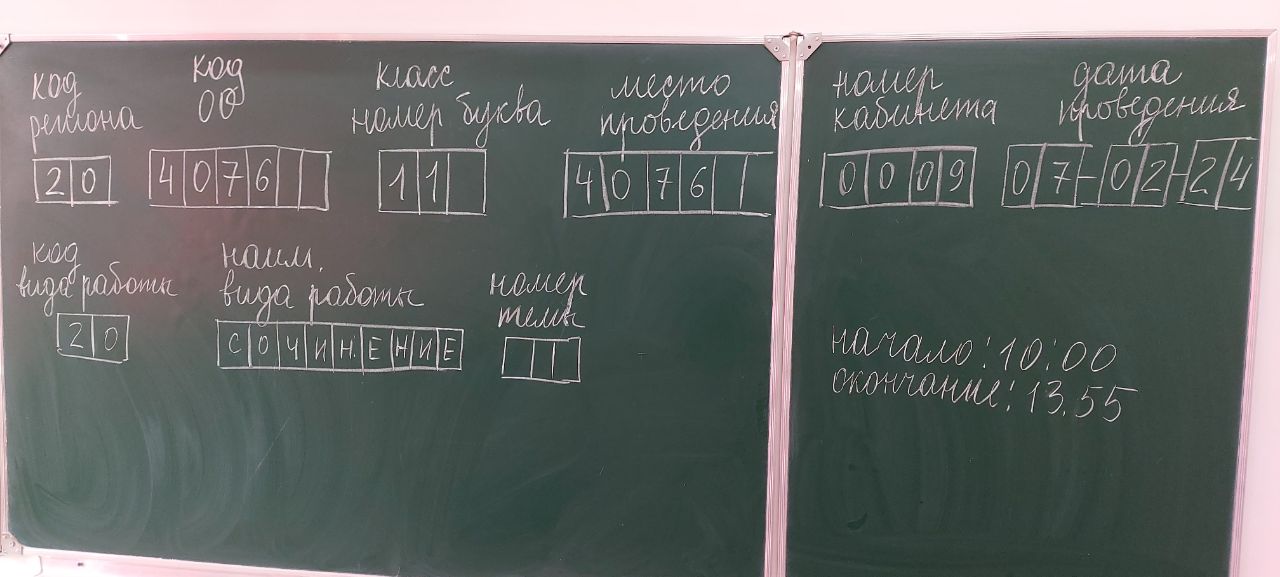 код региона
20
код ОО
4076
класс
номер буква
11
место проведения
4076
номер кабинета
0009
дата проведения
07-02-24
код
вида работы
20
наим.
вида работы
СОЧИНЕНИЕ
номер темы
начало: 10:00
окончание: 13.55